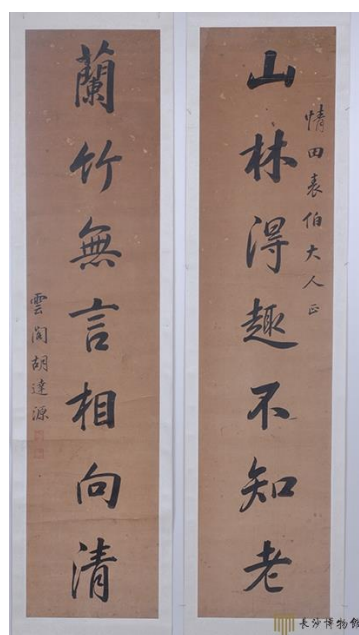 山林得趣不知老
情田表伯大人正
蘭竹無言相向清
雲閣胡達源
長沙博物館